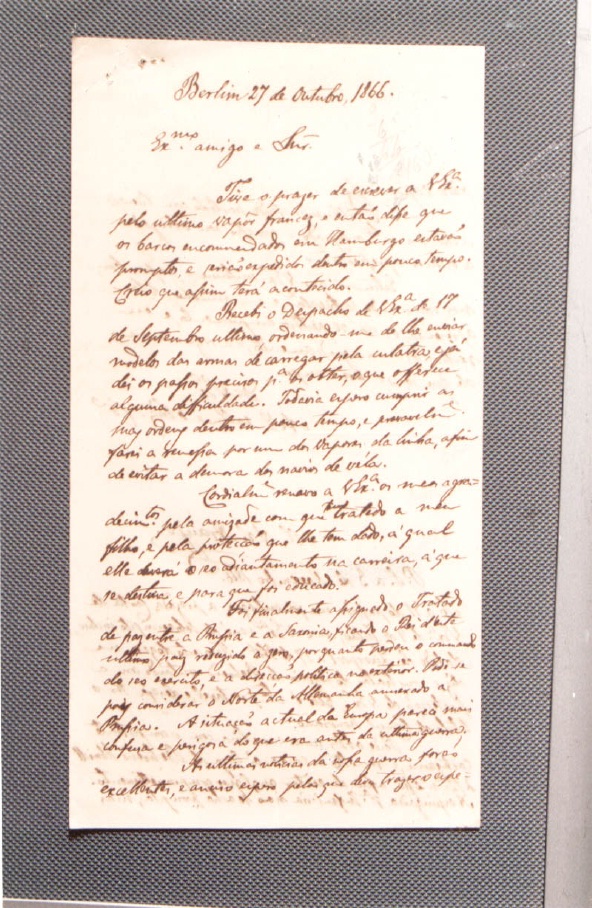 Berlim 27 de Outubro, 1866.
Exmo. amigo e Snr.
Tive o prazer de escrever a V Exa.
pelo ultimo vapor francez, e então disse que
os barcos encommendados em Hamburgo estavão
promptos, e serião expedidos dentro em pouco tempo.
Creio que assim terá acontecido.
Recebi o Despacho de V Exa. de 17
de Septembro ultimo ordenando-me de lhe enviar
modelos das armas de carregar pela culatra, e já
dei os passos precisos pa. os obter, o que offerece
alguma difficuldade. Todavia espero cumprir as
suas ordens dentro em pouco tempo, e provavelme.
farei a remessa por um dos vapores da linha, afim
de evitar a demora dos navios de véla.
Cordialme. renovo a V Exa. os meus agra=
decimtos. pela amizade com que tratado a meu
filho, e pela protecção que lhe tem dado, á qual
elle deverá o seo adiantamento na carreira, á que
se destina e para que foi educado.
Foi finalmente assignado o Tratado
de paz entre a Prussia e a Saxonia, ficando o Rei d'este
ultimo paiz reduzido a zero, porquanto perdeu o commando
do seo exercito, e a direcção politica no exterior. Pode-se
pois considerar o Norte da Allemanha annexado a
Prussia. A situação actual da Europa parece mais
confusa e perigosa do que era antes da ultima guerra.
As ultimas noticias da nossa guerra forão
excellentes, e ancioso espero pelas que deve trazer o espe=